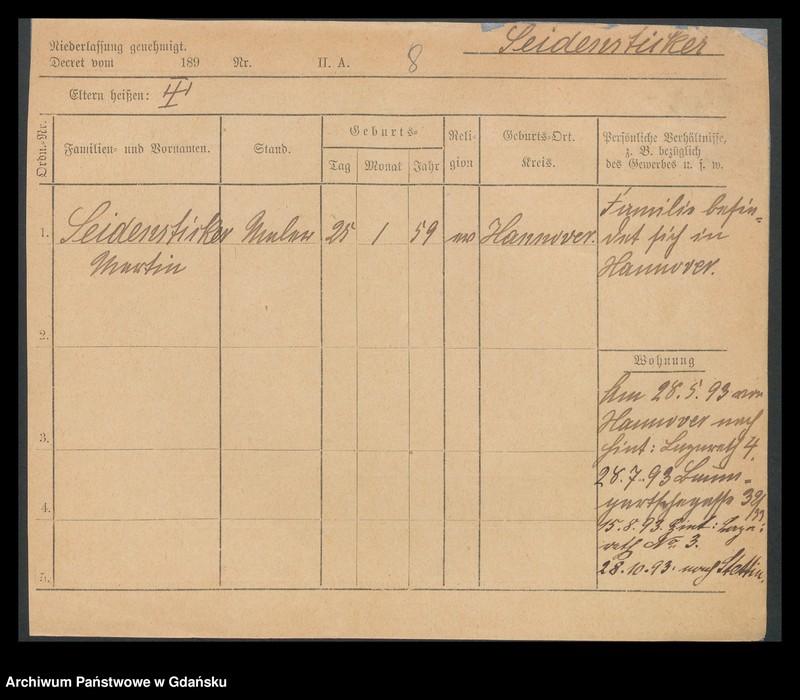 Niederlassung genehmigt.
Decret vom 189 Nr. II. A. 8
Seidensticker
Eltern heißen:
Ordn.-Nr.
Familien- und Vornamen.
Stand.
Geburts-
Tag
Monat
Jahr
Reli-
gion
Geburts-Ort.
Kreis.
Persönliche Verhältnisse,
z. B. bezüglich
des Gewerbes u. s. w.
1. Seidensticker Maler 25 1 59 ev Hannover.
Martin
Familie befin-
det sich in
Hannover.
2.
Wohnung
Am 28.5.93 von
Hannover nach
Hint: Lazareth 4.
28.7.93 Baum-
gartschegasse 32/33
15.8.93. Hint: Laza-
reth No. 3.
28.10.93. nach Stettin.
3.
4.
5.
Archiwum Państwowe w Gdańsku